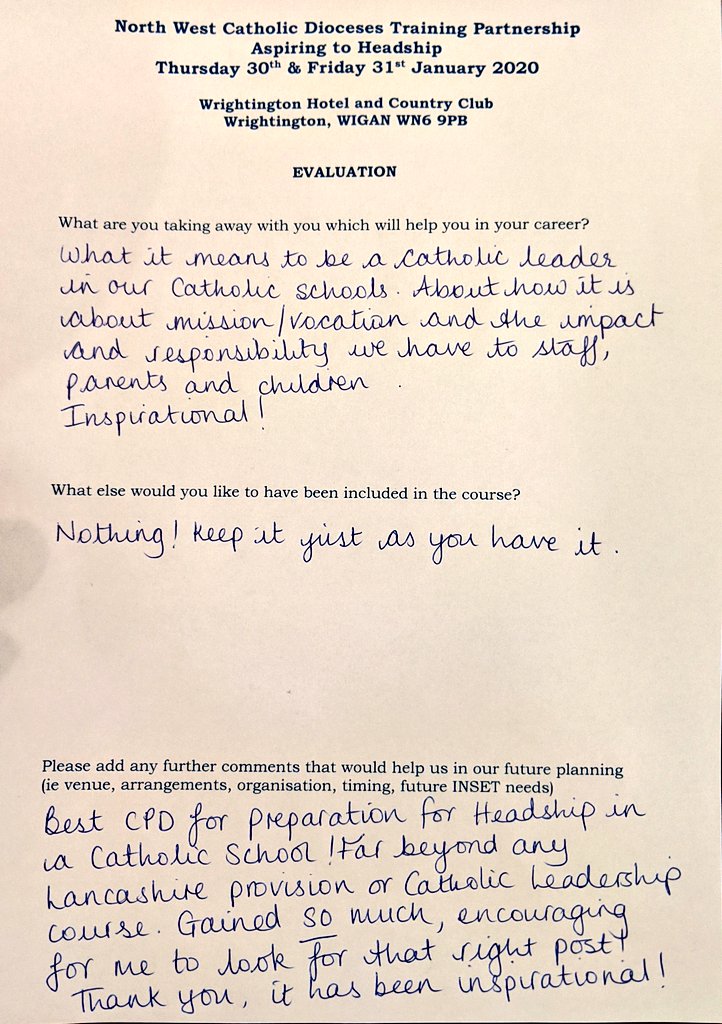 North West Catholic Dioceses Training Partnership
Aspiring to Headship
Thursday 30th & Friday 31st January 2020
Wrightington Hotel and Country Club
Wrightington, WIGAN WN6 9PB
EVALUATION
What are you taking away with you which will help you in your career?
What it means to be a Catholic leader
in our Catholic schools. About how it is
about mission/vocation and the impact
and responsibility we have to staff,
parents and children.
Inspirational!
What else would you like to have been included in the course?
Nothing! Keep it just as you have it.
Please add any further comments that would help us in our future planning
(ie venue, arrangements, organisation, timing, future INSET needs)
Best CPD for preparation for Headship in
a Catholic School! Far beyond any
Lancashire provision or Catholic Leadership
course. Gained so much, encouraging
for me to look for that right post!
Thank you, it has been inspirational!